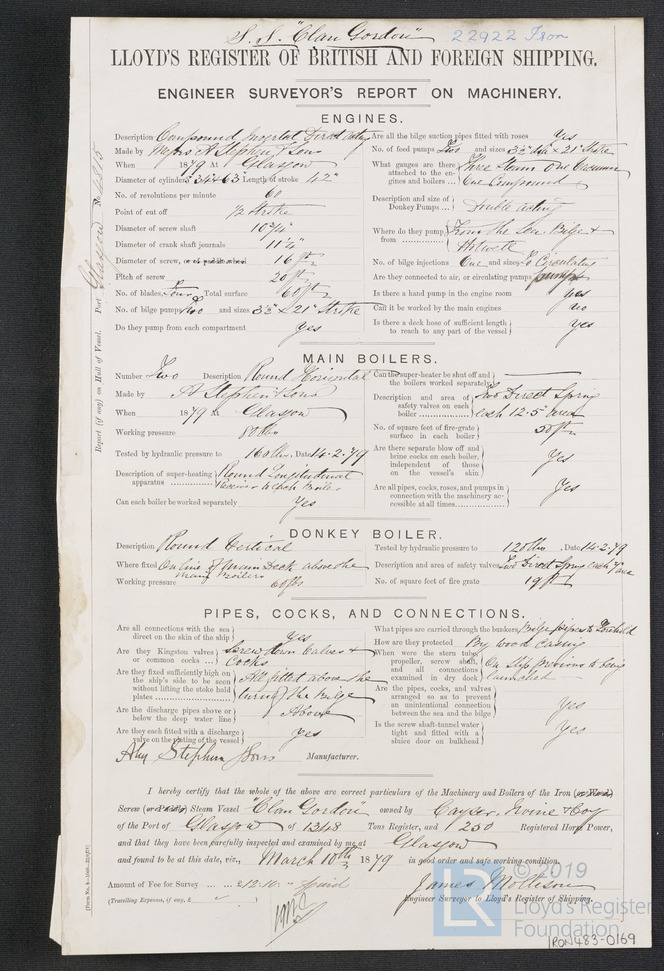 S. S. "Clan Gordon" 22922 Iron
LLOYD'S REGISTER OF BRITISH AND FOREIGN SHIPPING.
ENGINEER SURVEYOR'S REPORT ON MACHINERY.
ENGINES.
Description Compound Inverted Direct Acting
Made by Messrs A Stephen & Sons
When 1879 At Glasgow
Diameter of cylinders 34 & 63" Length of stroke 42"
No. of revolutions per minute 60
Point of cut off 1/2 Stroke
Diameter of screw shaft 10 3/4"
Diameter of crank shaft journals 11 1/4"
Diameter of screw, or of paddle wheel 16 ft
Pitch of screw 20 ft
No. of blades, Four Total surface 60 ft
No. of bilge pumps Two and sizes 3 1/2" x 21" Stroke
Do they pump from each compartment Yes
Are all the bilge suction pipes fitted with roses Yes
No. of feed pumps Two and sizes 3 1/2" dia x 21" Stroke
What gauges are there attached to the engines and boilers ... Three Steam One Vacuum
One Compound
Description and size of Donkey Pumps ... Double acting
Where do they pump from From the Sea Bilge &
Hotwell
No. of bilge injections One and sizes To Circulating
Are they connected to air, or circulating pumps pumps
Is there a hand pump in the engine room yes
Can it be worked by the main engines no
Is there a deck hose of sufficient length to reach to any part of the vessel Yes
Report (if any) on Hull of Vessel. Port Glasgow No
MAIN BOILERS.
Number Two Description Round Horizontal
Made by A Stephen & Sons
When 1879 At Glasgow
Working pressure 80 lbs
Tested by hydraulic pressure to 160 lbs. Date 14.2.79
Description of super-heating apparatus Round Longitudinal
Receiver to each Boiler
Can each boiler be worked separately Yes
Can the super-heater be shut off and the boilers worked separately
Description and area of safety valves on each boiler Two Direct Spring
each 12.5" area
No. of square feet of fire-grate surface in each boiler 50 ft
Are there separate blow off and brine cocks on each boiler, independent of those on the vessel's skin Yes
Are all pipes, cocks, roses, and pumps in connection with the machinery accessible at all times Yes
DONKEY BOILER.
Description Round Vertical
Where fixed On line of Main Deck above the
Main Boilers
Working pressure 60 lbs
Tested by hydraulic pressure to 120 lbs, Date 14.2.79
Description and area of safety valves Two Direct Spring each 7" area
No. of square feet of fire grate 19 ft
PIPES, COCKS, AND CONNECTIONS.
Are all connections with the sea direct on the skin of the ship yes
Are they Kingston valves or common cocks ... Screw down Valves &
Cocks
Are they fixed sufficiently high on the ship's side to be seen without lifting the stoke hold plates All fitted above the
turn of the Bilge
Are the discharge pipes above or below the deep water line Above
Are they each fitted with a discharge valve on the plating of the vessel Yes
What pipes are carried through the bunkers Bilge pipes to Forehold
How are they protected By wood casing
When were the stern tube, propeller, screw shaft, and all connections examined in dry dock On Slip previous to being
launched
Are the pipes, cocks, and valves arranged so as to prevent an unintentional connection between the sea and the bilge Yes
Is the screw shaft-tunnel water tight and fitted with a sluice door on bulkhead Yes
Alex Stephen & Sons Manufacturer.
I hereby certify that the whole of the above are correct particulars of the Machinery and Boilers of the Iron (or Wood)
Screw (or Paddle) Steam Vessel "Clan Gordon" owned by Cayzer, Irvine & Coy
of the Port of Glasgow of 1348 Tons Register, and 230 Registered Horse Power,
and that they have been carefully inspected and examined by me at Glasgow
and found to be at this date, viz., March 10th 1879 in good order and safe working condition.
Amount of Fee for Survey ... ... £12.10. - paid
James Mollison
(Travelling Expenses, if any, £ )
Engineer Surveyor to Lloyd's Register of Shipping.
© 2019
LR Lloyd's Register
Foundation
IRON483-0169